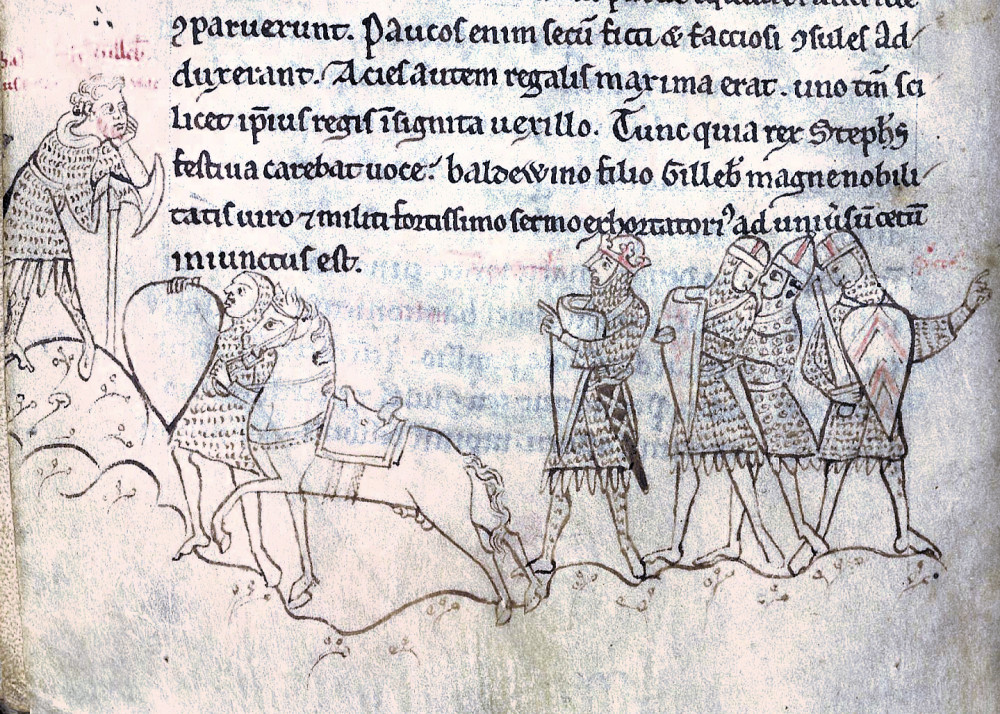 ꝯparuerunt. Paucos enim secū ficti & facciosi ꝯsules ad
duxerant. Acies autem regalis maxima erat. uno tm̄ sci
licet ip̄ius regis īsignita uexillo. Tunc quia rex Stephꝰ
festiua carebat uoce: baldewino filio Gilleb̄ magne nobili
tatis uiro ⁊ militi fortissimo sermo exhortatoriꝰ ad uniūsū cetū
iniunctus est.